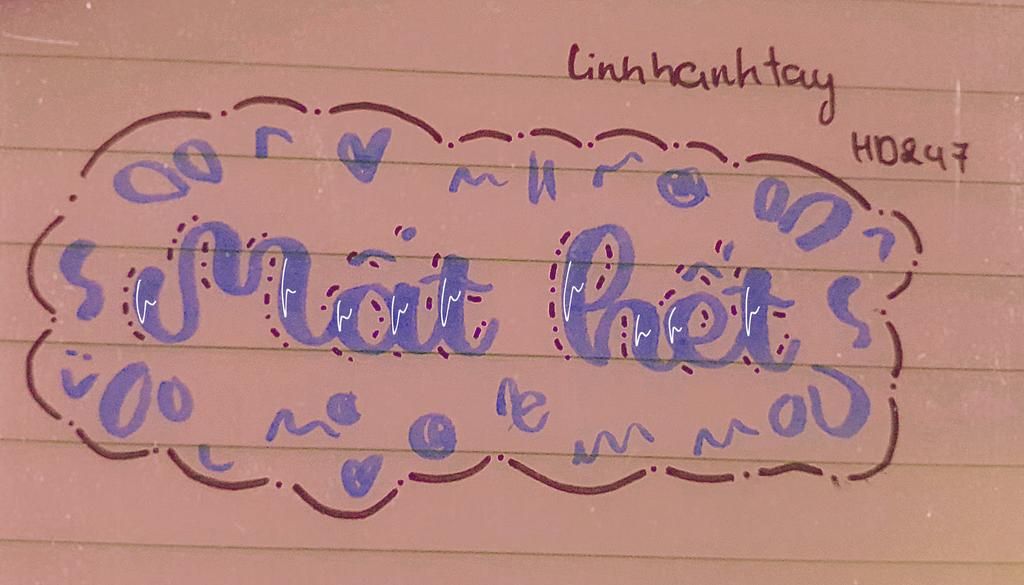 linhhanhtay
HD247
Mất hết